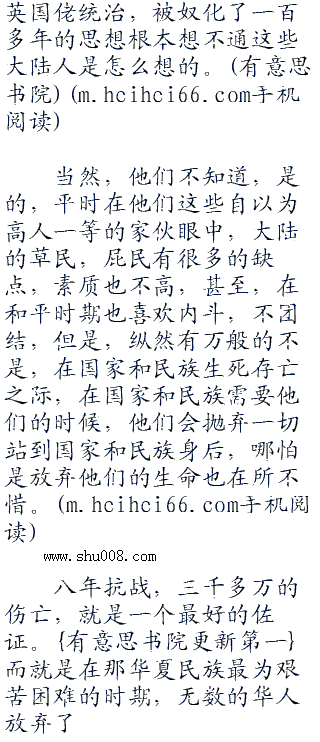 英国佬统治，被奴化了一百
多年的思想根本想不通这些
大陆人是怎么想的。(有意思
书院)(m.hcihci66.com手机
阅读)
当然，他们不知道，是
的，平时在他们这些自以为
高人一等的家伙眼中，大陆
的草民，屁民有很多的缺
点，素质也不高，甚至，在
和平时期也喜欢内斗，不团
结，但是，纵然有万般的不
是，在国家和民族生死存亡
之际，在国家和民族需要他
们的时候，他们会抛弃一切
站到国家和民族身后，哪怕
是放弃他们的生命也在所不
惜。(m.hcihci66.com手机阅
读)
www.shu008.com
八年抗战，三千多万的
伤亡，就是一个最好的佐
证。{有意思书院更新第一}
而就是在那华夏民族最为艰
苦困难的时期，无数的华人
放弃了